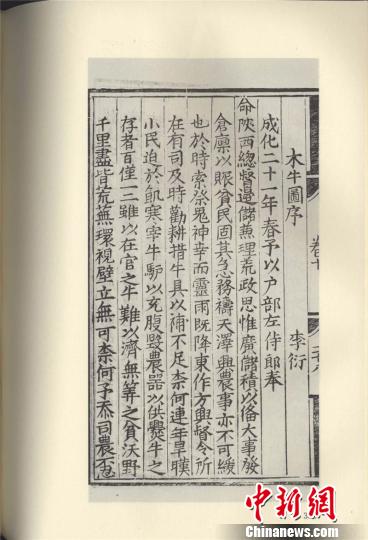 木牛圖序 李衍
成化二十一年春予以户部左侍郎奉
命陝西總督邊儲兼理荒政思惟廣儲積以俻大事發
倉廩以賑貧民固其急務禱天澤興農事亦不可緩
也於時索祭鬼神幸而靈雨既降東作方興督令所
在有司及時勸耕措牛具以補不足柰何連年旱暵
小民迫於飢寒宰牛馿以充腹毀農器以供爨牛之
存者百僅一二雖以在官之牛難以濟無筭之貧沃野
千里盡皆荒蕪環視壁立無可柰何予忝司農
中新网
www.chinanews.com